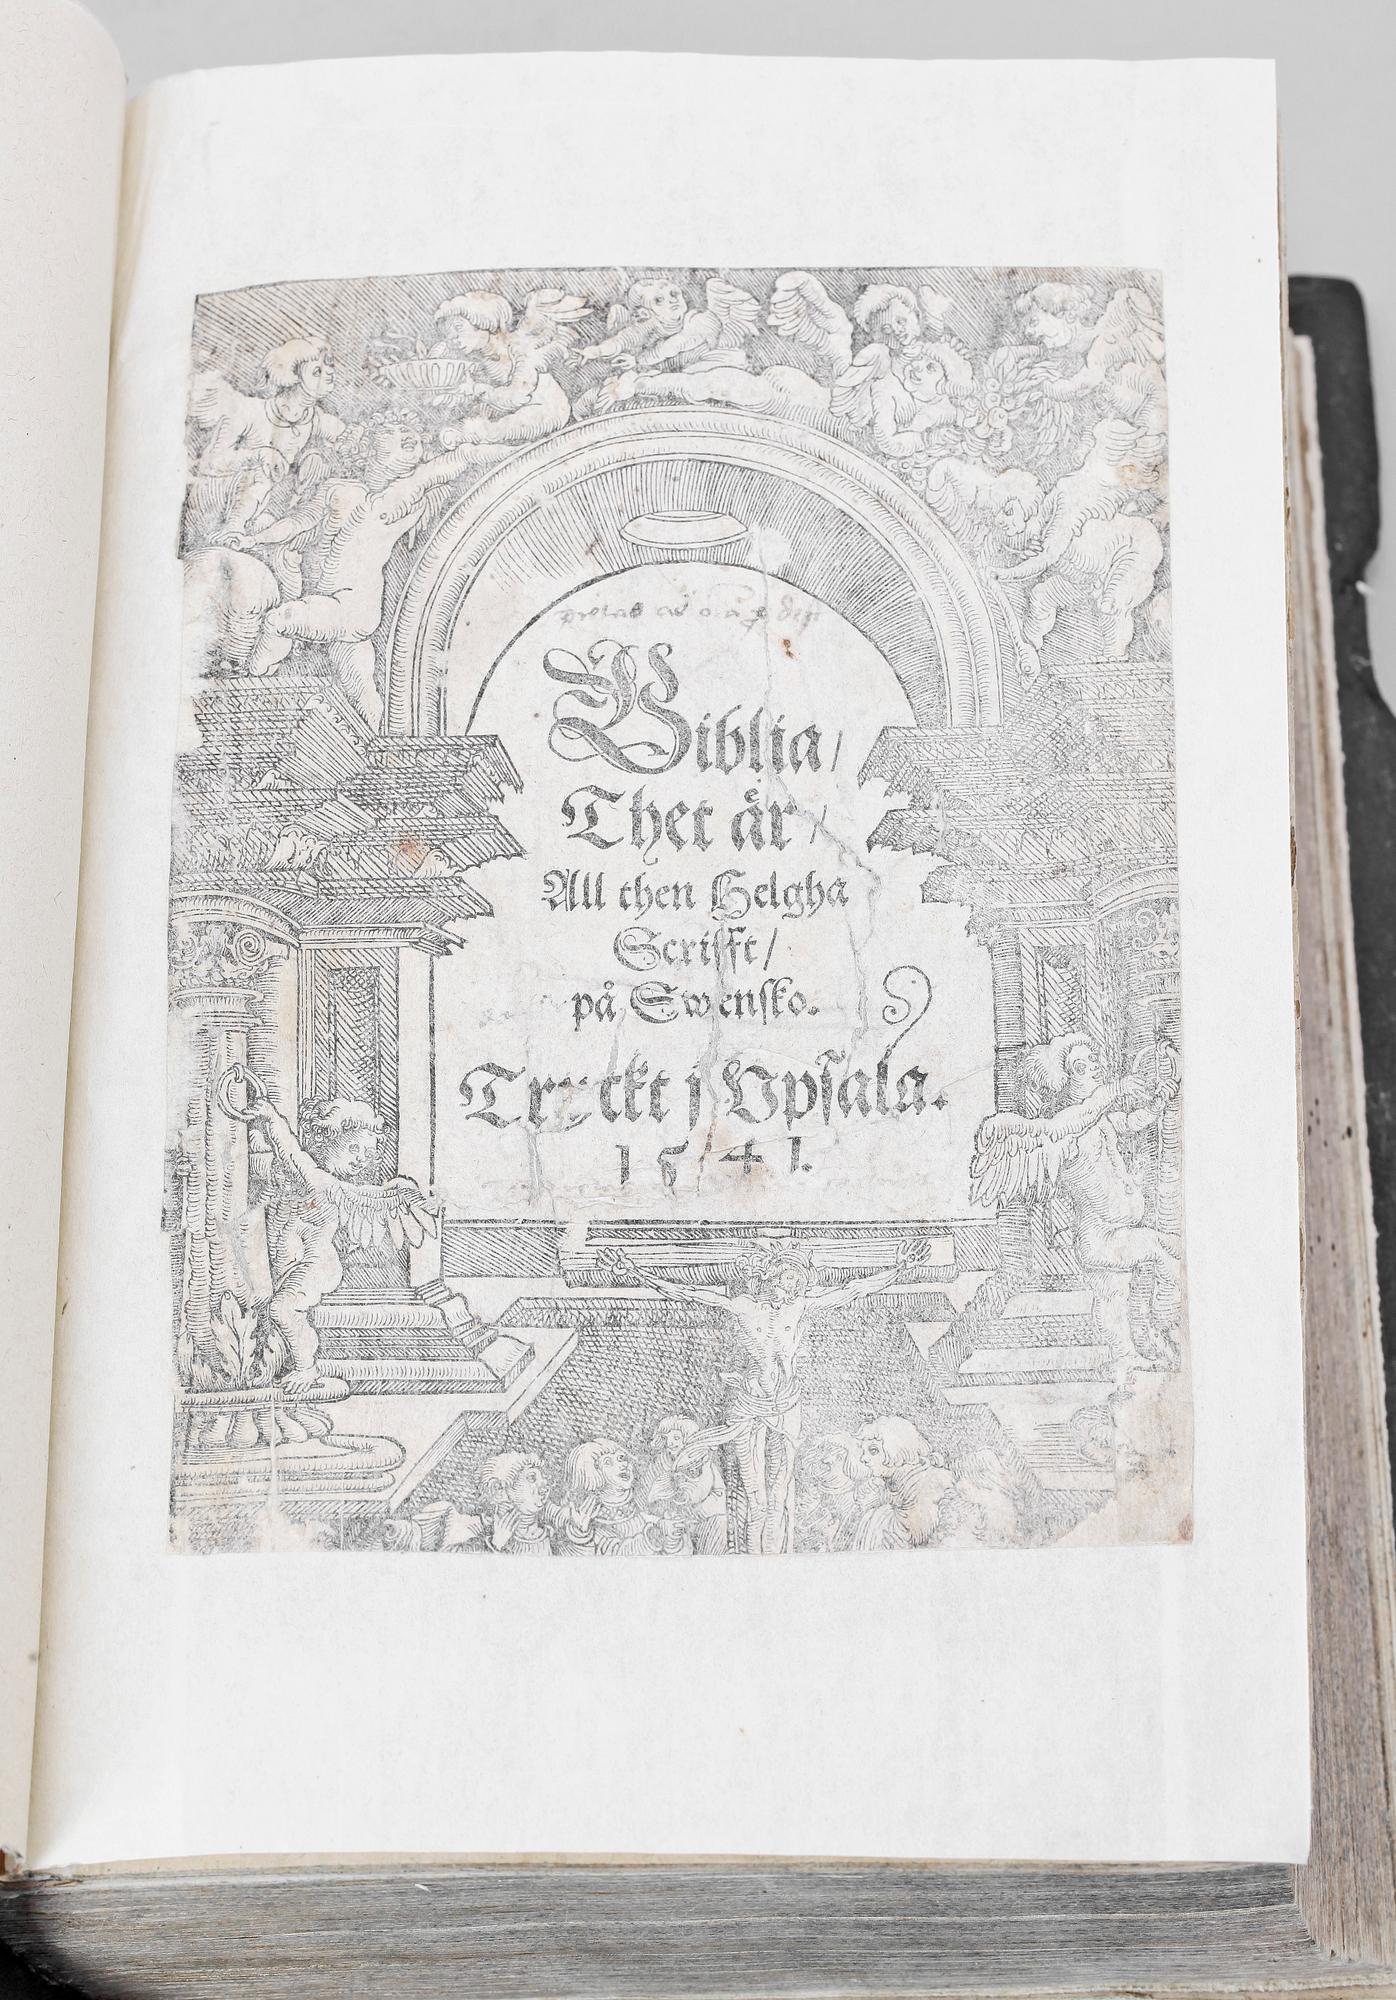 Biblia/
Thet är/
All then Helgha
Scrifft/
på Swensko.
Tryckt j Vpsala.
1541.